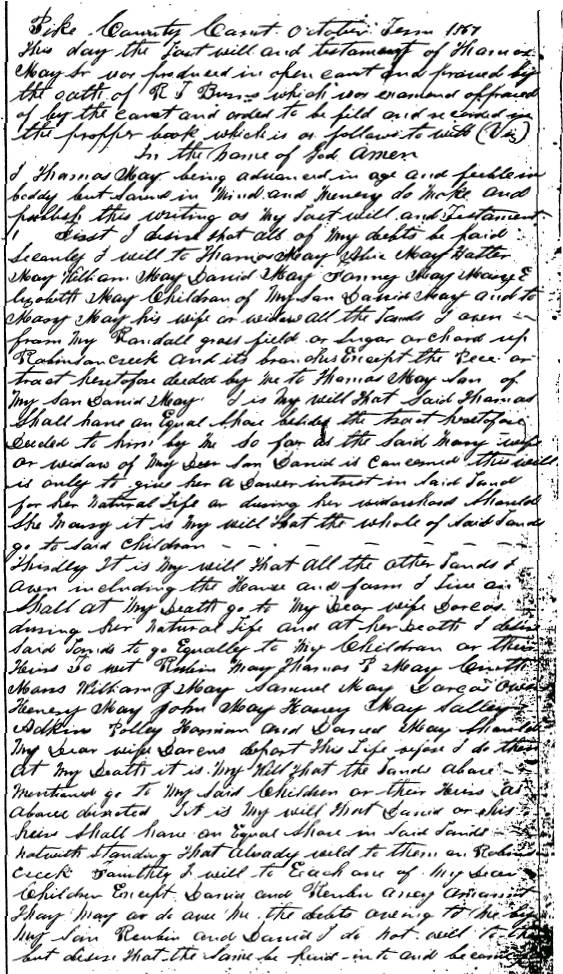 Pike County Court October Term 1867
This day the last will and testament of Thomas
May Sr was produced in open court and proved by
the oath of R J Burns which was examond approved
of by the court and orded to be fild and recorded in
the propper book which is as follows to with (Viz)
In the Name of God Amen
I Thomas May being advanced in age and feeble in
boddy but sound in Mind and Memery do Make and
publish this writing as My last will and testament
First I desire that all of My debts be paid
Secanly I will to Thomas May
May William May David May Fanney May Mary E
lizabeth May Children of My Son David May and to
Mary May his wife or widow all the lands I own
from My Randall grass field or Sugar orchard up
Robinson creek and its branches Except the Pece or
tract heretofore deeded by me to Thomas May Son of
My San David May I is My will That Said Thomas
Shall have an Equal Share besides the tract heretofore
Deeded to him by Me So far as the said Mary wife
or widow of My Dear San David is Concerned this will
is only to give her a Dower intrist in Said Land
for her Natural Life or during her widowhood Should
She Marry it is My will That the whole of Said Lands
go to Said Children
Thirdly It is My will That all the other Lands I
own including the House and farm I live on
Shall at My Death go to My Dear wife Dorcas
during her Natural Life and at her Death I desire
Said Lands to go Equalley to My Children or their
Heirs To wit Rubin May Thomas P May
Mans William J May Samuel May Dorcas Owens
Henery May John May Harvey May Salley
Adkins Polley Harman and David May Should
My Dear wife Darcus depart This Life before I do then
at My Death it is My Will That the Lands above
Mentioned go to My Said Children or their Heirs as
above directed It is My will That David or his
heirs Shall have an Equal Share in Said Lands
notwith Standing That already willd to them on Robins
Creek Fourthly I will to Each one of My Dear
Children Except David and Reubin aney amount
Thay May or do owe Me the debts owing to Me by
My San Reubin and David I do not will to
but desire That the Same be paid in to and become